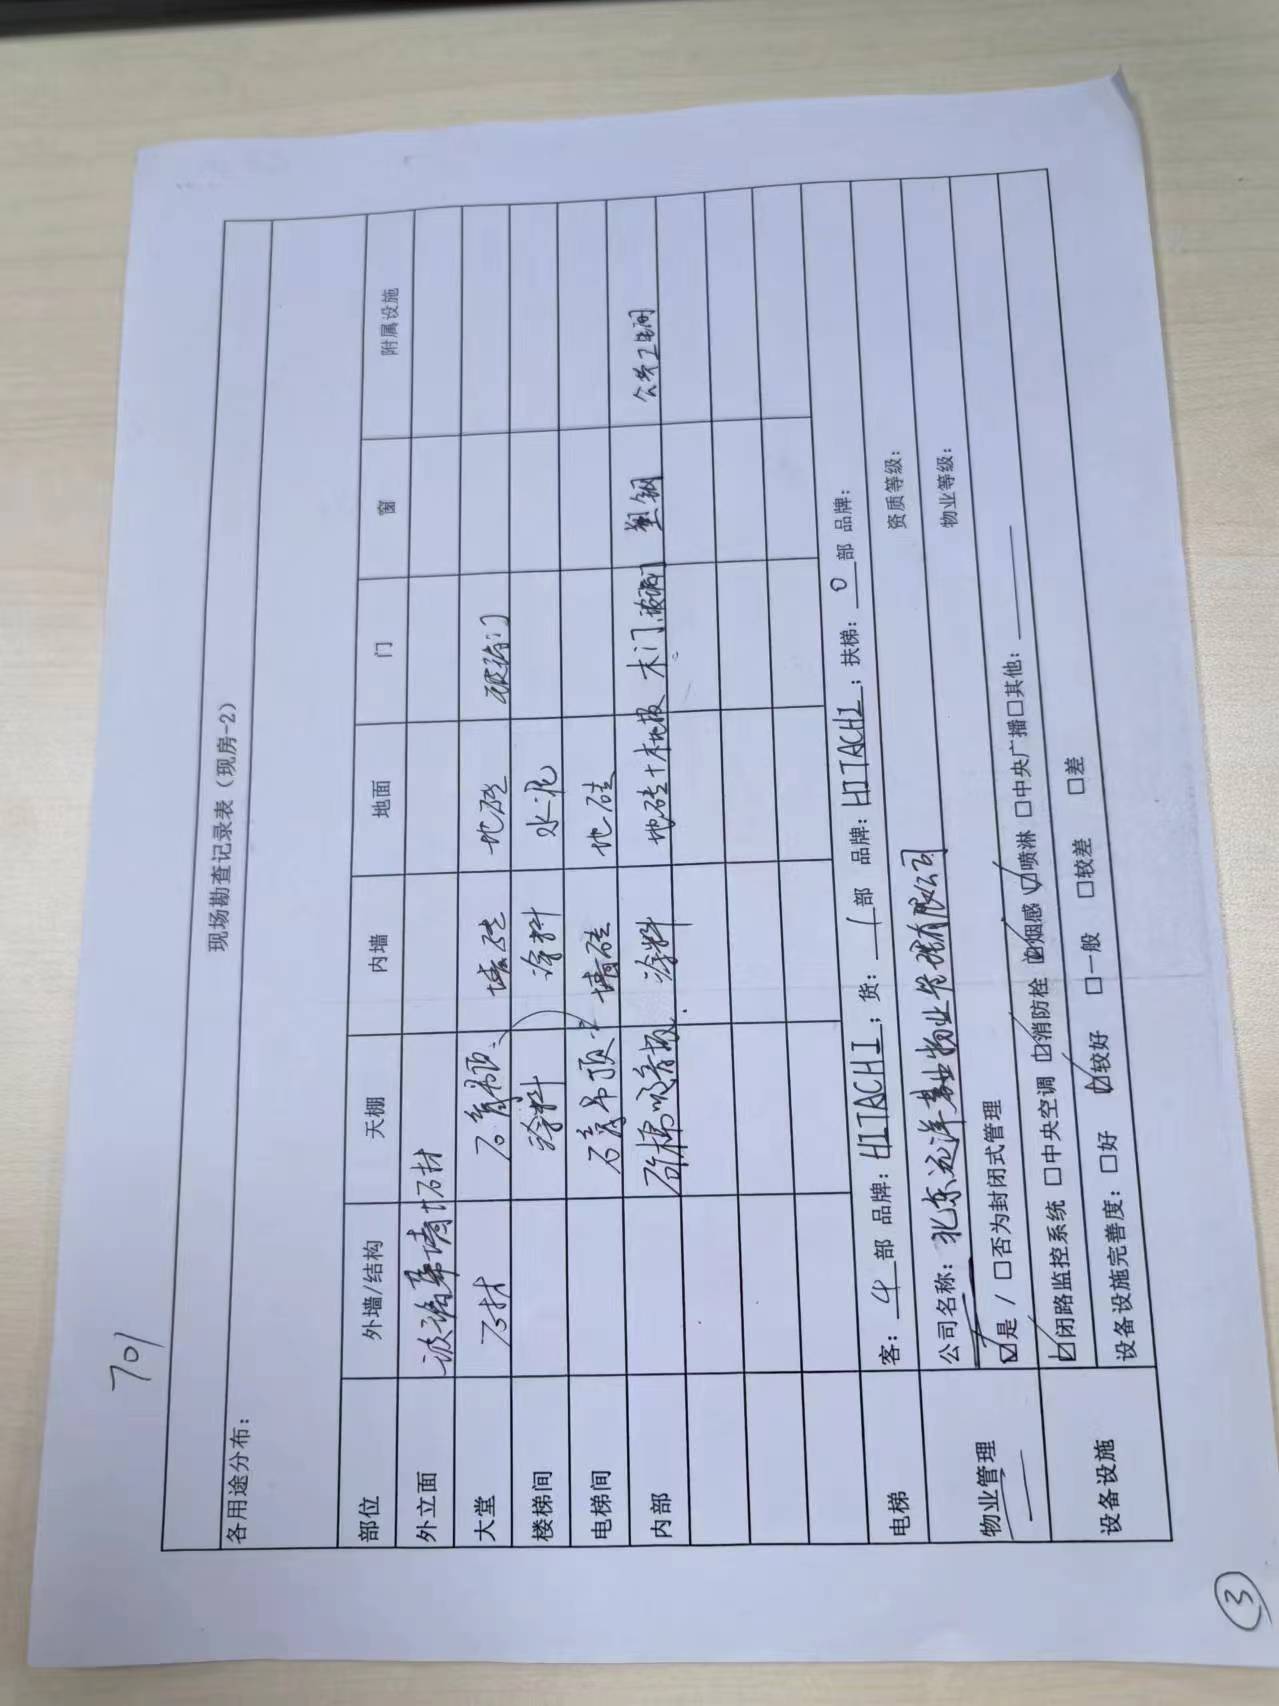 701
现场勘查记录表（现房-2）
各用途分布：
部位 外墙/结构 天棚 内墙 地面 门 窗 附属设施
外立面 玻璃幕墙+石材
大堂 石材 石膏 墙砖 地砖 玻璃门
楼梯间 涂料 涂料 水泥
电梯间 石膏吊顶 墙砖 地砖
内部 矿棉吸音板 涂料 地砖+木地板 木门 玻璃门 塑钢 公共卫生间
电梯 客：4部 品牌：HITACHI；货：1部 品牌：HITACHI；扶梯：0部 品牌：
物业管理 公司名称：北京远洋基业物业管理有限公司 资质等级：
☑是 / □否为封闭式管理 物业等级：
设备设施 ☑闭路监控系统 □中央空调 ☑消防栓 ☑烟感 ☑喷淋 □中央广播 □其他：
设备设施完善度：□好 ☑较好 □一般 □较差 □差
3